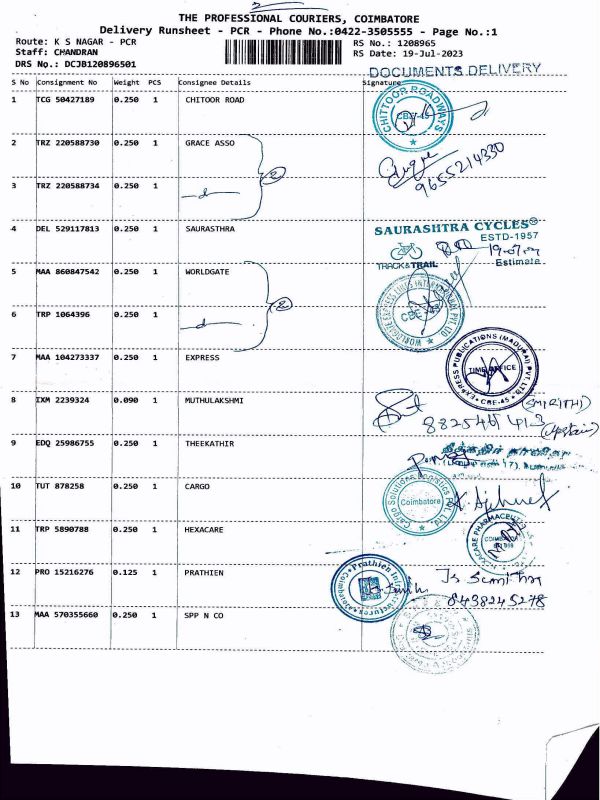 THE PROFESSIONAL COURIERS, COIMBATORE
Delivery Runsheet - PCR - Phone No.:0422-3505555 - Page No.:1
Route: K S NAGAR - PCR RS No.: 1208965
Staff: CHANDRAN RS Date: 19-Jul-2023
DRS No.: DCJB120896501
DOCUMENTS DELIVERY
S No Consignment No Weight PCS Consignee Details Signature
1 TCG 50427189 0.250 1 CHITOOR ROAD
CHITTOOR ROADWAYS
CBE-45
2 TRZ 220588730 0.250 1 GRACE ASSO
9655214330
3 TRZ 220588734 0.250 1
4 DEL 529117813 0.250 1 SAURASTHRA
SAURASHTRA CYCLES®
ESTD-1957
TRACK & TRAIL Estimate
5 MAA 860847542 0.250 1 WORLDGATE
6 TRP 1064396 0.250 1
7 MAA 104273337 0.250 1 EXPRESS
EXPRESS PUBLICATIONS (MADURAI) PVT. LTD.
TIME OFFICE
CBE-45
8 IXM 2239324 0.090 1 MUTHULAKSHMI
(Upstair)
9 EDQ 25986755 0.250 1 THEEKATHIR
10 TUT 878258 0.250 1 CARGO
Cargo Solutions Logistics Pvt. Ltd
Coimbatore
11 TRP 5890788 0.250 1 HEXACARE
12 PRO 15216276 0.125 1 PRATHIEN
Prathien Infrastructures
Coimbatore
8438245278
13 MAA 570355660 0.250 1 SPP N CO